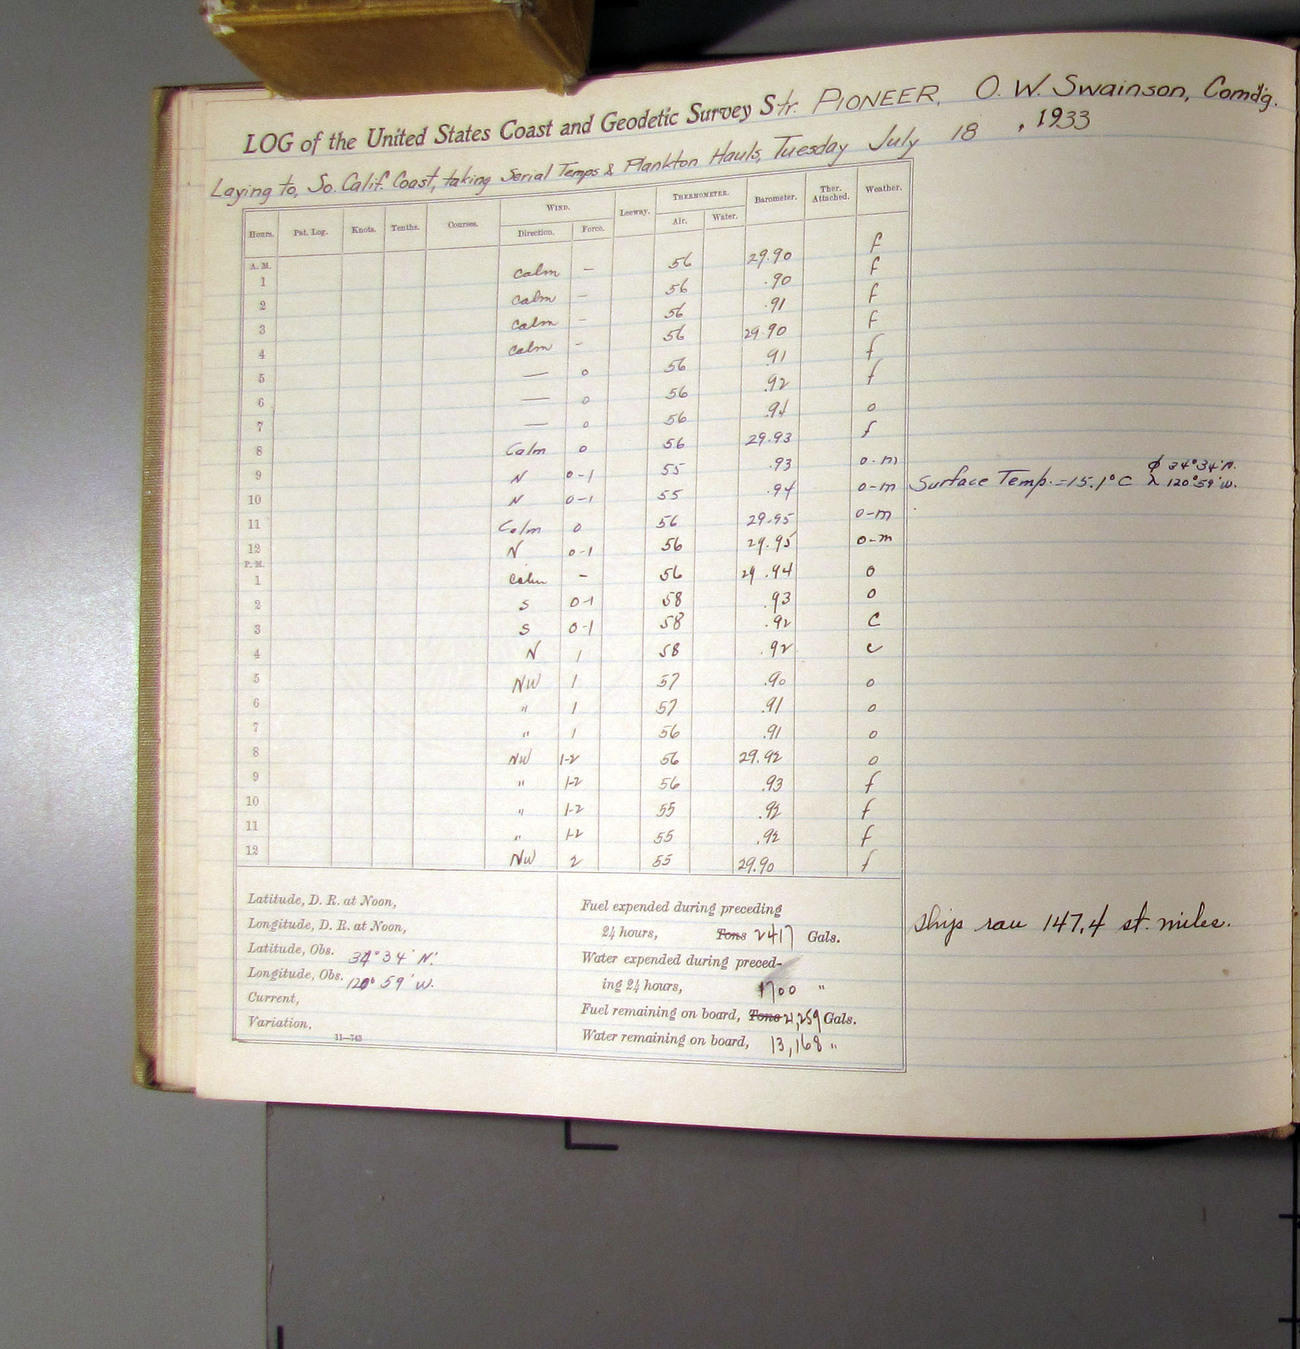 LOG of the United States Coast and Geodetic Survey Str. PIONEER, O. W. Swainson, Comd'g.
Laying to, So. Calif. Coast, taking Serial Temps & Plankton Hauls, Tuesday July 18, 1933
Hours. Pat. Log. Knots. Tenths. Courses. WIND. Leeway. THERMOMETER. Barometer. Ther. Attached. Weather.
Direction. Force. Air. Water.
A. M.
1 Calm — 56 29.90 f
2 Calm — 56 .90 f
3 Calm — 56 .91 f
4 Calm — 56 29.90 f
5 — 0 56 .91 f
6 — 0 56 .92 f
7 — 0 56 .94 o
8 Calm 0 56 29.93 f
9 N 0-1 55 .93 o-m
10 N 0-1 55 .94 o-m Surface Temp. = 15.1°C φ 34°34'N. λ 120°59'W.
11 Calm 0 56 29.95 o-m
12 N 0-1 56 29.95 o-m
P. M.
1 Calm — 56 29.94 o
2 S 0-1 58 .93 o
3 S 0-1 58 .92 c
4 N 1 58 .92 c
5 NW 1 57 .90 o
6 " 1 57 .91 o
7 " 1 56 .91 o
8 NW 1-2 56 29.92 o
9 " 1-2 56 .93 f
10 " 1-2 55 .92 f
11 " 1-2 55 .92 f
12 NW 2 55 29.90 f
Latitude, D. R. at Noon,
Longitude, D. R. at Noon,
Latitude, Obs. 34° 34' N.
Longitude, Obs. 120° 59' W.
Current,
Variation,
11—743
Fuel expended during preceding
24 hours, Tons 2417 Gals.
Water expended during preced-
ing 24 hours, 1700 "
Fuel remaining on board, Tons 21,259 Gals.
Water remaining on board, 13,168 "
Ships run 147.4 st. miles.